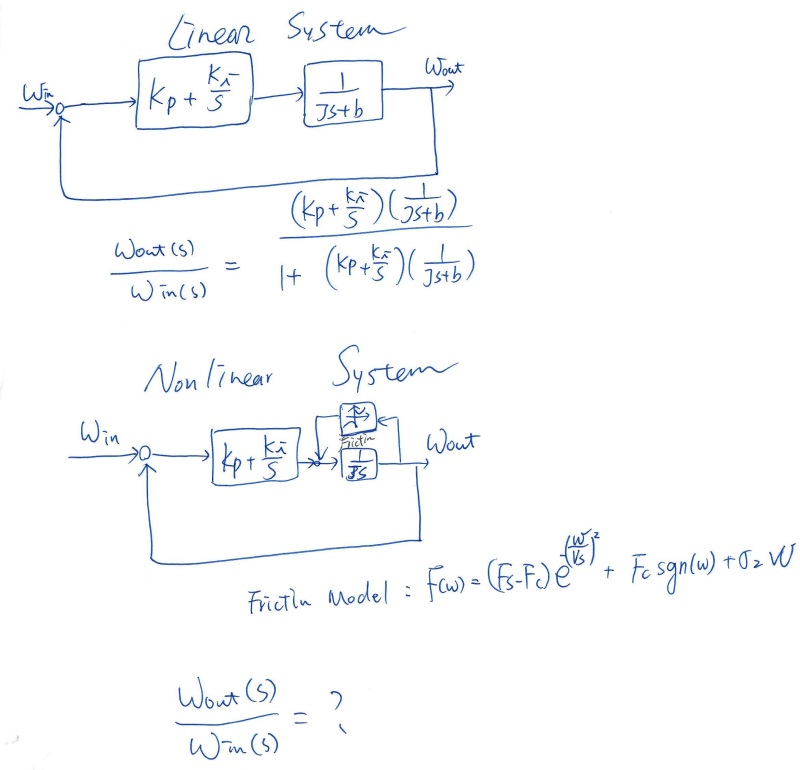 Linear System
Win
Kp + Ki/S
1/(Js+b)
Wout
Wout(s)/Win(s) = (Kp + Ki/S)(1/(Js+b)) / (1 + (Kp + Ki/S)(1/(Js+b)))
Nonlinear System
Win
Kp + Ki/S
Frictin
1/JS
Wout
Frictin Model : F(w) = (Fs-Fc) e^-(w/Vs)^2 + Fc sgn(w) + σ2 W
Wout(s)/Win(s) = ?